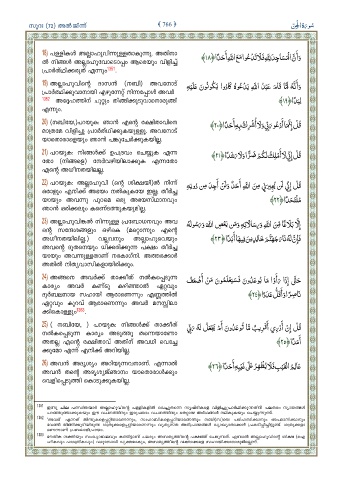 സൂറ: (72) അൽജിന്ന്
﴾ 766 ﴿
سورة الجن
18) പള്ളികൾ അല്ലാഹുവിന്നുള്ളതാകുന്നു. അതിനാ
ൽ നിങ്ങൾ അല്ലാഹുവോടൊപ്പം ആരെയും വിളിച്ച്
പ്രാർത്ഥിക്കരുത് എന്നും
وَأَنَّ الْمَسَاجِدَ لِلَّهِ فَلَا تَدْعُوا مَعَ اللَّهِ أَحَدًا ﴿١٨﴾
19) അല്ലാഹുവിന്റെ ദാസൻ (നബി) അവനോട്
പ്രാർത്ഥിക്കുവാനായി എഴുന്നേറ്റ് നിന്നപ്പോൾ അവർ
അദ്ദേഹത്തിന് ചുറ്റും തിങ്ങിക്കൂടുവാനൊരുങ്ങി
എന്നും.
وَأَنَّهُ لَمَّا قَامَ عَبْدُ اللَّهِ يَدْعُوهُ كَادُوا يَكُونُونَ عَلَيْهِ
لِبَدًا ﴿١٩﴾
20) (നബിയേ,)പറയുക: ഞാൻ എന്റെ രക്ഷിതാവിനെ
മാത്രമേ വിളിച്ചു പ്രാർത്ഥിക്കുകയുള്ളൂ. അവനോട്
യാതൊരാളെയും ഞാൻ പങ്കുചേർക്കുകയില്ല.
قُلْ إِنَّمَا أَدْعُو رَبِّي وَلَا أُشْرِكُ بِهِ أَحَدًا ﴿٢٠﴾
21) പറയുക: നിങ്ങൾക്ക് ഉപദ്രവം ചെയ്യുക എന്ന
തോ (നിങ്ങളെ) നേർവഴിയിലാക്കുക എന്നതോ
എന്റെ അധീനതയിലല്ല.
قُلْ إِنِّي لَا أَمْلِكُ لَكُمْ ضَرًّا وَلَا رَشَدًا ﴿٢١﴾
22) പറയുക: അല്ലാഹുവി (ന്റെ ശിക്ഷയി)ൽ നിന്ന്
ഒരാളും എനിക്ക് അഭയം നൽകുകയേ ഇല്ല; തീർച്ച
യായും അവന്നു പുറമെ ഒരു അഭയസ്ഥാനവും
ഞാൻ ഒരിക്കലും കണ്ടെത്തുകയുമില്ല.
قُلْ إِنِّي لَنْ يُجِيرَنِي مِنَ اللَّهِ أَحَدٌ وَلَنْ أَجِدَ مِنْ دُونِهِ
مُلْتَحَدًا ﴿٢٢﴾
23) അല്ലാഹുവിങ്കൽ നിന്നുള്ള പ്രബോധനവും അവ
ന്റെ സന്ദേശങ്ങളും ഒഴികെ (മറ്റൊന്നും എന്റെ
അധീനതയിലില്ല.) വല്ലവനും അല്ലാഹുവെയും
അവന്റെ ദൂതനെയും ധിക്കരിക്കുന്ന പക്ഷം തീർച്ച
യായും അവന്നുള്ളതാണ് നരകാഗ്നി. അത്തരക്കാർ
അതിൽ നിത്യവാസികളായിരിക്കും.
إِلَّا بَلَاغًا مِنَ اللَّهِ وَرِسَالَاتِهِ وَمَنْ يَعْصِ اللَّهَ وَرَسُولَهُ
فَإِنَّ لَهُ نَارَ جَهَنَّمَ خَالِدِينَ فِيهَا أَبَدًا ﴿٢٣﴾
24) അങ്ങനെ അവർക്ക് താക്കീത് നൽകപ്പെടുന്ന
കാര്യം അവർ കണ്ടു കഴിഞ്ഞാൽ ഏറ്റവും
ദുർബലനായ സഹായി ആരാണെന്നും എണ്ണത്തിൽ
ഏറ്റവും കുറവ് ആരാണെന്നും അവർ മനസ്സിലാ
ക്കിക്കൊള്ളും
حَتَّى إِذَا رَأَوْا مَا يُوعَدُونَ فَسَيَعْلَمُونَ مَنْ أَضْعَفُ
نَاصِرًا وَأَقَلُّ عَدَدًا ﴿٢٤﴾
25) ( നബിയേ, ) പറയുക: നിങ്ങൾക്ക് താക്കീത്
നൽകപ്പെടുന്ന കാര്യം അടുത്തു തന്നെയാണോ
അതല്ല എന്റെ രക്ഷിതാവ് അതിന് അവധി വെച്ചേ
ക്കുമോ എന്ന് എനിക്ക് അറിയില്ല.
قُلْ إِنْ أَدْرِي أَقَرِيبٌ مَا تُوعَدُونَ أَمْ يَجْعَلُ لَهُ رَبِّي
أَمَدًا ﴿٢٥﴾
26) അവൻ അദൃശ്യം അറിയുന്നവനാണ്. എന്നാൽ
അവൻ തന്റെ അദൃശ്യജ്ഞാനം യാതൊരാൾക്കും
വെളിപ്പെടുത്തി കൊടുക്കുകയില്ല.
عَالِمُ الْغَيْبِ فَلَا يُظْهِرُ عَلَى غَيْبِهِ أَحَدًا ﴿٢٦﴾